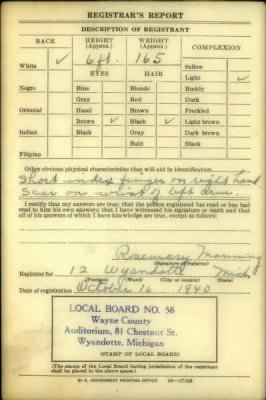 REGISTRAR'S REPORT
DESCRIPTION OF REGISTRANT
RACE HEIGHT (Approx.) WEIGHT (Approx.) COMPLEXION
White ✓ 6 ft. 165 Sallow
Light ✓
EYES HAIR
Negro Blue Blonde Ruddy
Gray Red Dark
Oriental Hazel Brown Freckled
Brown ✓ Black ✓ Light brown
Indian Black Gray Dark brown
Bald Black
Filipino
Other obvious physical characteristics that will aid in identification.
Short index finger on right hand
Scar on wrist of left arm.
I certify that my answers are true; that the person registered has read or has had read to him his own answers; that I have witnessed his signature or mark and that all of his answers of which I have knowledge are true, except as follows:
Rosemary Manning
(Signature of registrar)
Registrar for 12 Wyandotte Mich
(Precinct) (Ward) (City or county) (State)
Date of registration October 16 1940
LOCAL BOARD NO. 58
Wayne County
Auditorium, 81 Chestnut St.
Wyandotte, Michigan
(STAMP OF LOCAL BOARD)
(The stamp of the Local Board having jurisdiction of the registrant shall be placed in the above space.)
U. S. GOVERNMENT PRINTING OFFICE 16—17105